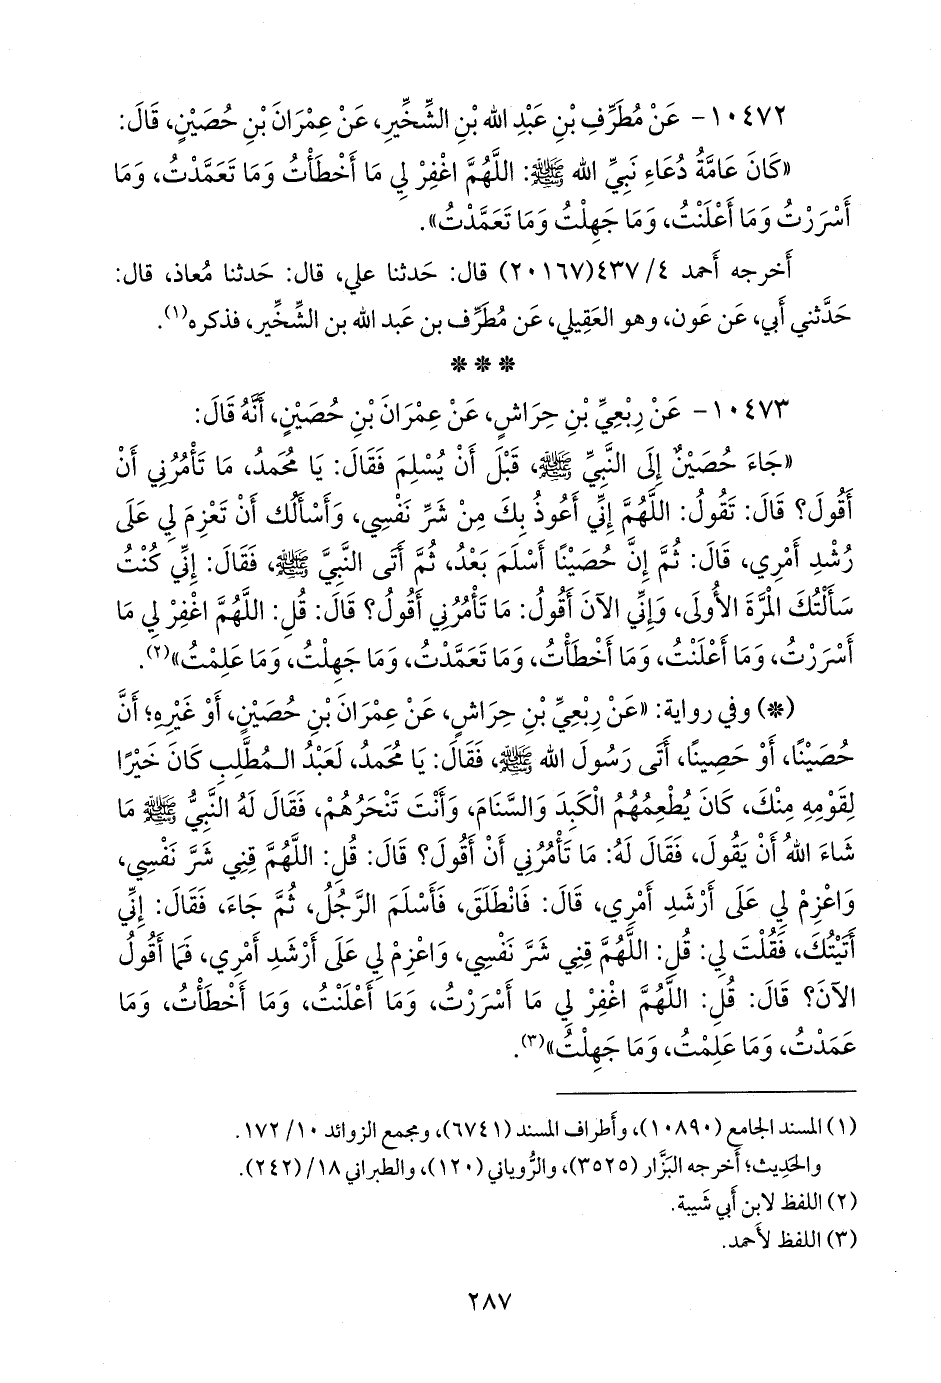 ١٠٤٧٢- عَنْ مُطَرِّفِ بْنِ عَبْدِ الله بْنِ الشِّخِّيرِ، عَنْ عِمْرَانَ بْنِ حُصَيْنٍ، قَالَ:
«كَانَ عَامَّةُ دُعَاءِ نَبِيِّ الله ﷺ: اللَّهُمَّ اغْفِرْ لِي مَا أَخْطَأْتُ وَمَا تَعَمَّدْتُ، وَمَا
أَسْرَرْتُ وَمَا أَعْلَنْتُ، وَمَا جَهِلْتُ وَمَا تَعَمَّدْتُ».
أخرجه أحمد ٤/ ٤٣٧(٢٠١٦٧) قال: حَدثنا علي، قال: حَدثنا مُعاذ، قال:
حَدَّثني أَبي، عَن عَون، وهو العَقِيلي، عَن مُطَرِّف بن عَبد الله بن الشِّخِّير، فذكره(١).
***
١٠٤٧٣- عَنْ رِبْعِيِّ بْنِ حِرَاشٍ، عَنْ عِمْرَانَ بْنِ حُصَيْنٍ، أَنَّهُ قَالَ:
«جَاءَ حُصَيْنٌ إِلَى النَّبِيِّ ﷺ، قَبْلَ أَنْ يُسْلِمَ فَقَالَ: يَا مُحَمدُ، مَا تَأْمُرُنِي أَنْ
أَقُولَ؟ قَالَ: تَقُولُ: اللَّهُمَّ إِنِّي أَعُوذُ بِكَ مِنْ شَرِّ نَفْسِي، وَأَسْأَلُكَ أَنْ تَعْزِمَ لِي عَلَى
رُشْدِ أَمْرِي، قَالَ: ثُمَّ إِنَّ حُصَيْنًا أَسْلَمَ بَعْدُ، ثُمَّ أَتَى النَّبِيَّ ﷺ، فَقَالَ: إِنِّي كُنْتُ
سَأَلْتُكَ المْرَّةَ الأُولَى، وَإِنِّي الآنَ أَقُولُ: مَا تَأْمُرُنِي أَقُولُ؟ قَالَ: قُلِ: اللَّهُمَّ اغْفِرْ لِي مَا
أَسْرَرْتُ، وَمَا أَعْلَنْتُ، وَمَا أَخْطَأْتُ، وَمَا تَعَمَّدْتُ، وَمَا جَهِلْتُ، وَمَا عَلِمْتُ»(٢).
(*) وفي رواية: «عَنْ رِبْعِيِّ بْنِ حِرَاشٍ، عَنْ عِمْرَانَ بْنِ حُصَيْنٍ، أَوْ غَيْرِهِ؛ أَنَّ
حُصَيْنًا، أَوْ حَصِينًا، أَتَى رَسُولَ الله ﷺ، فَقَالَ: يَا مُحَمدُ، لَعَبْدُ الـمُطَّلِبِ كَانَ خَيْرًا
لِقَوْمِهِ مِنْكَ، كَانَ يُطْعِمُهُمُ الْكَبِدَ وَالسَّنَامَ، وَأَنْتَ تَنْحَرُهُمْ، فَقَالَ لَهُ النَّبِيُّ ﷺ مَا
شَاءَ اللهُ أَنْ يَقُولَ، فَقَالَ لَهُ: مَا تَأْمُرُنِي أَنْ أَقُولَ؟ قَالَ: قُلِ: اللَّهُمَّ قِنِي شَرَّ نَفْسِي،
وَاعْزِمْ لِي عَلَى أَرْشَدِ أَمْرِي، قَالَ: فَانْطَلَقَ، فَأَسْلَمَ الرَّجُلُ، ثُمَّ جَاءَ، فَقَالَ: إِنِّي
أَتَيْتُكَ، فَقُلْتَ لِي: قُلِ: اللَّهُمَّ قِنِي شَرَّ نَفْسِي، وَاعْزِمْ لِي عَلَى أَرْشَدِ أَمْرِي، فَمَا أَقُولُ
الآنَ؟ قَالَ: قُلِ: اللَّهُمَّ اغْفِرْ لِي مَا أَسْرَرْتُ، وَمَا أَعْلَنْتُ، وَمَا أَخْطَأْتُ، وَمَا
عَمَدْتُ، وَمَا عَلِمْتُ، وَمَا جَهِلْتُ»(٣).
(١) المسند الجامع (١٠٨٩٠)، وأطراف المسند (٦٧٤١)، ومجمع الزوائد ١٠/ ١٧٢.
والحَدِيث؛ أخرجه البَزَّار (٣٥٢٥)، والرُّوياني (١٢٠)، والطبراني ١٨/ (٢٤٢).
(٢) اللفظ لابن أَبي شَيبة.
(٣) اللفظ لأَحمد.
٢٨٧